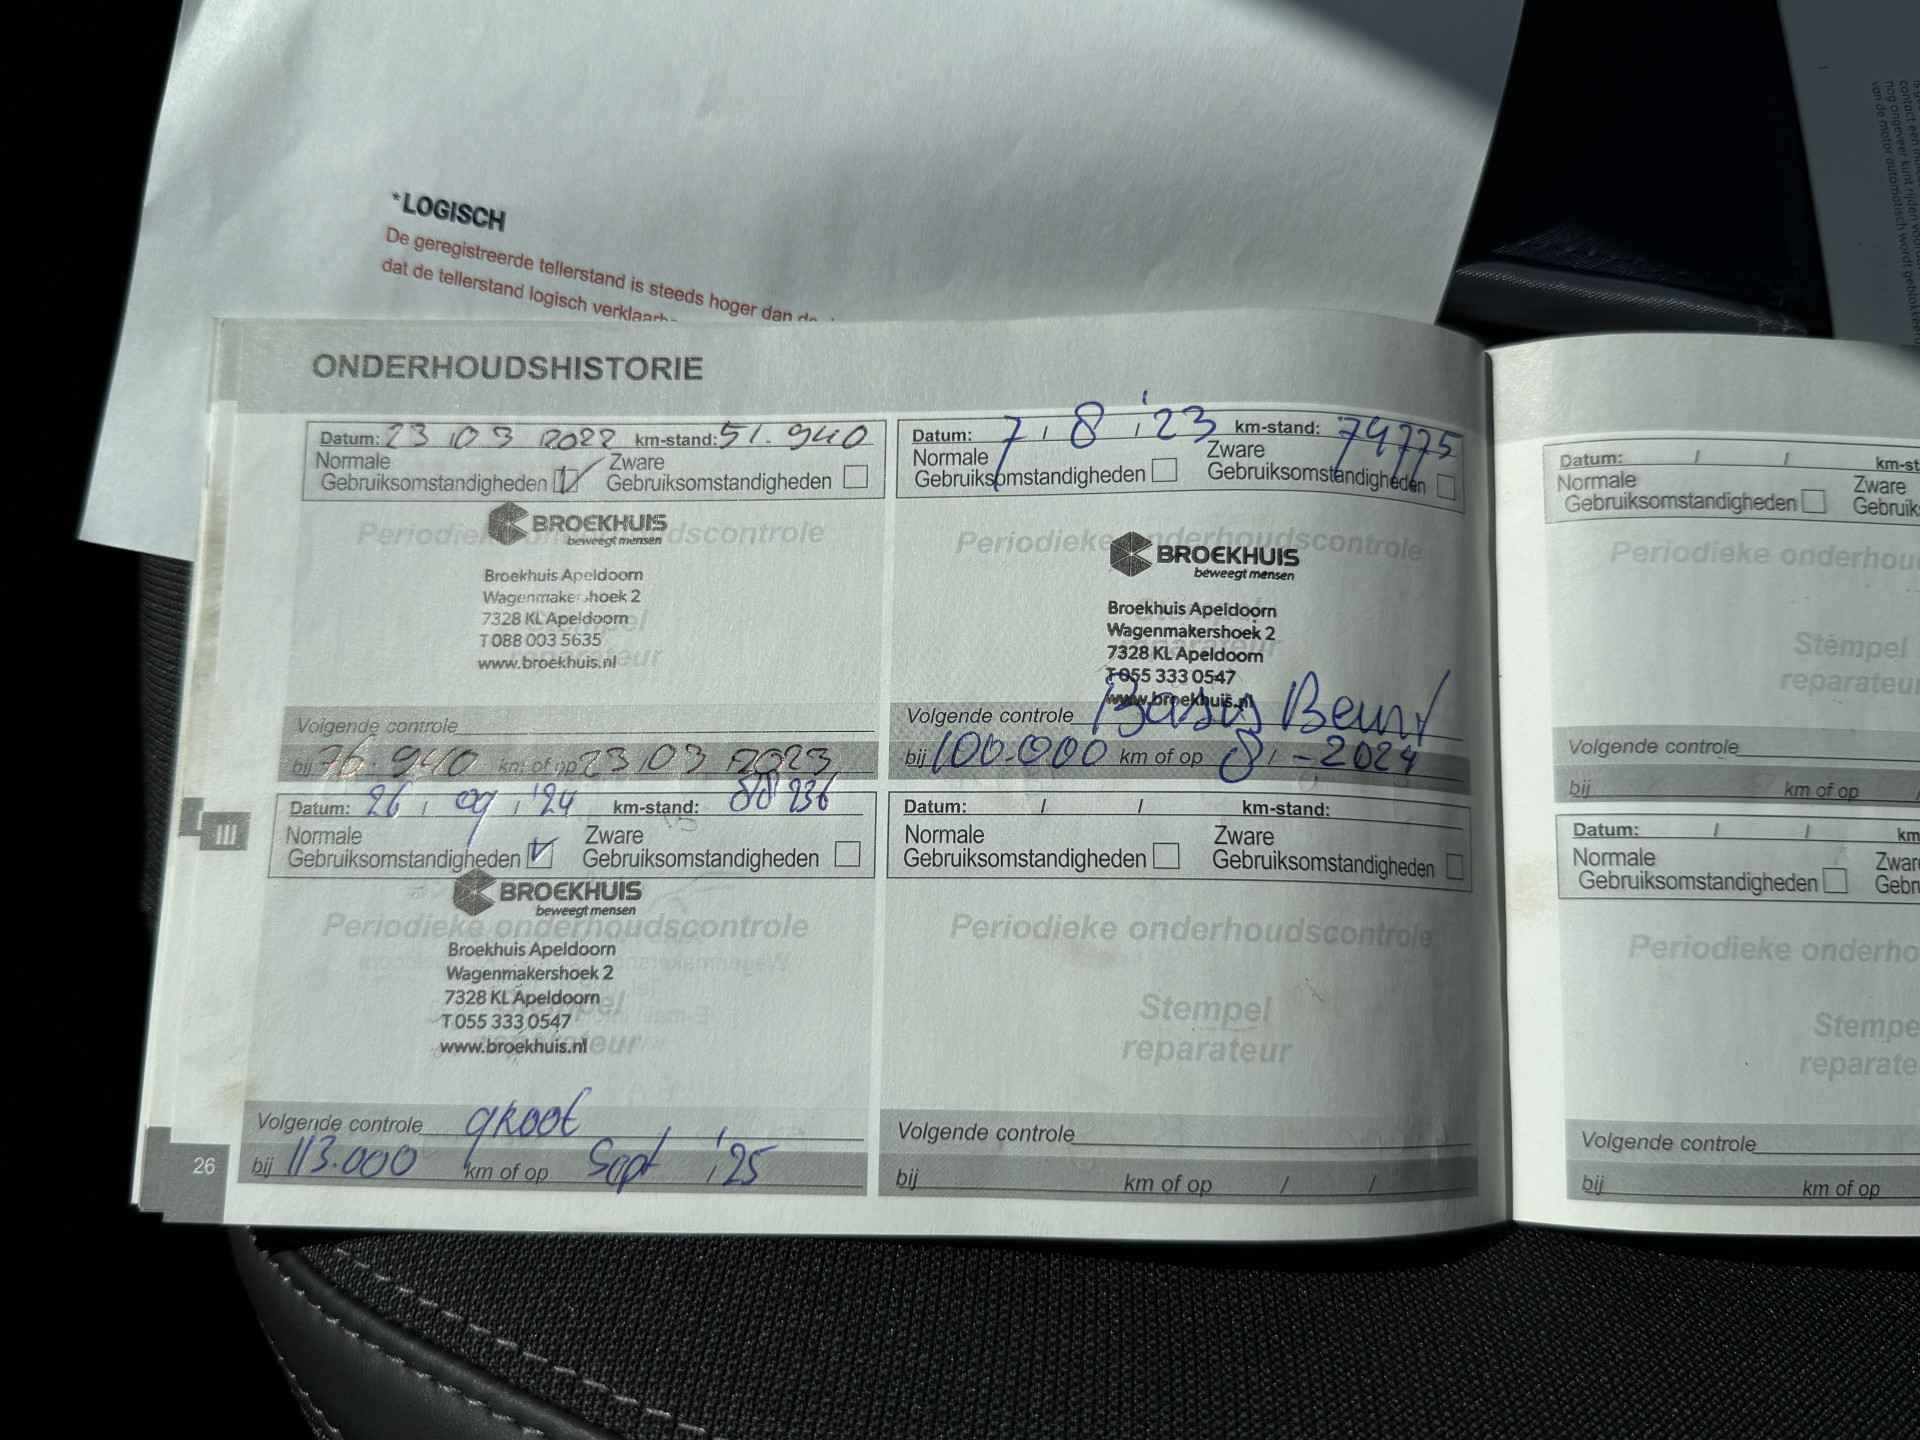 *LOGISCH
De geregistreerde tellerstand is steeds hoger dan de
dat de tellerstand logisch
ONDERHOUDSHISTORIE
Datum: 23 / 03 / 2022 km-stand: 51.940
Normale
Gebruiksomstandigheden
Zware
Gebruiksomstandigheden
BROEKHUIS
beweegt mensen
Periodieke onderhoudscontrole
Broekhuis Apeldoorn
Wagenmakershoek 2
7328 KL Apeldoorn
T 088 003 5635
www.broekhuis.nl
Stempel
reparateur
Volgende controle
bij 76.940 km of op 23 / 03 / 2023
Datum: 7 / 8 / '23 km-stand: 74775
Normale
Gebruiksomstandigheden
Zware
Gebruiksomstandigheden
Periodieke onderhoudscontrole
BROEKHUIS
beweegt mensen
Broekhuis Apeldoorn
Wagenmakershoek 2
7328 KL Apeldoorn
T 055 333 0547
www.broekhuis.nl
Stempel
reparateur
Volgende controle Basis Beurt
bij 100.000 km of op 8 / - 2024
Datum: 26 / 09 / '24 km-stand: 88236
Normale
Gebruiksomstandigheden
Zware
Gebruiksomstandigheden
BROEKHUIS
beweegt mensen
Periodieke onderhoudscontrole
Broekhuis Apeldoorn
Wagenmakershoek 2
7328 KL Apeldoorn
T 055 333 0547
www.broekhuis.nl
Stempel
reparateur
Volgende controle groot
bij 113.000 km of op Sept / '25
Datum: / / km-stand:
Normale
Gebruiksomstandigheden
Zware
Gebruiksomstandigheden
Periodieke onderhoudscontrole
Stempel
reparateur
Volgende controle
bij km of op / /
III
26
Datum: / / km-st
Normale
Gebruiksomstandigheden
Zware
Gebruik
Periodieke onderhou
Stempel
reparateur
Volgende controle
bij km of op /
Datum: / / km
Normale
Gebruiksomstandigheden
Zwar
Gebru
Periodieke onderho
Stempe
reparate
Volgende controle
bij km of op
van de motor automatisch wordt